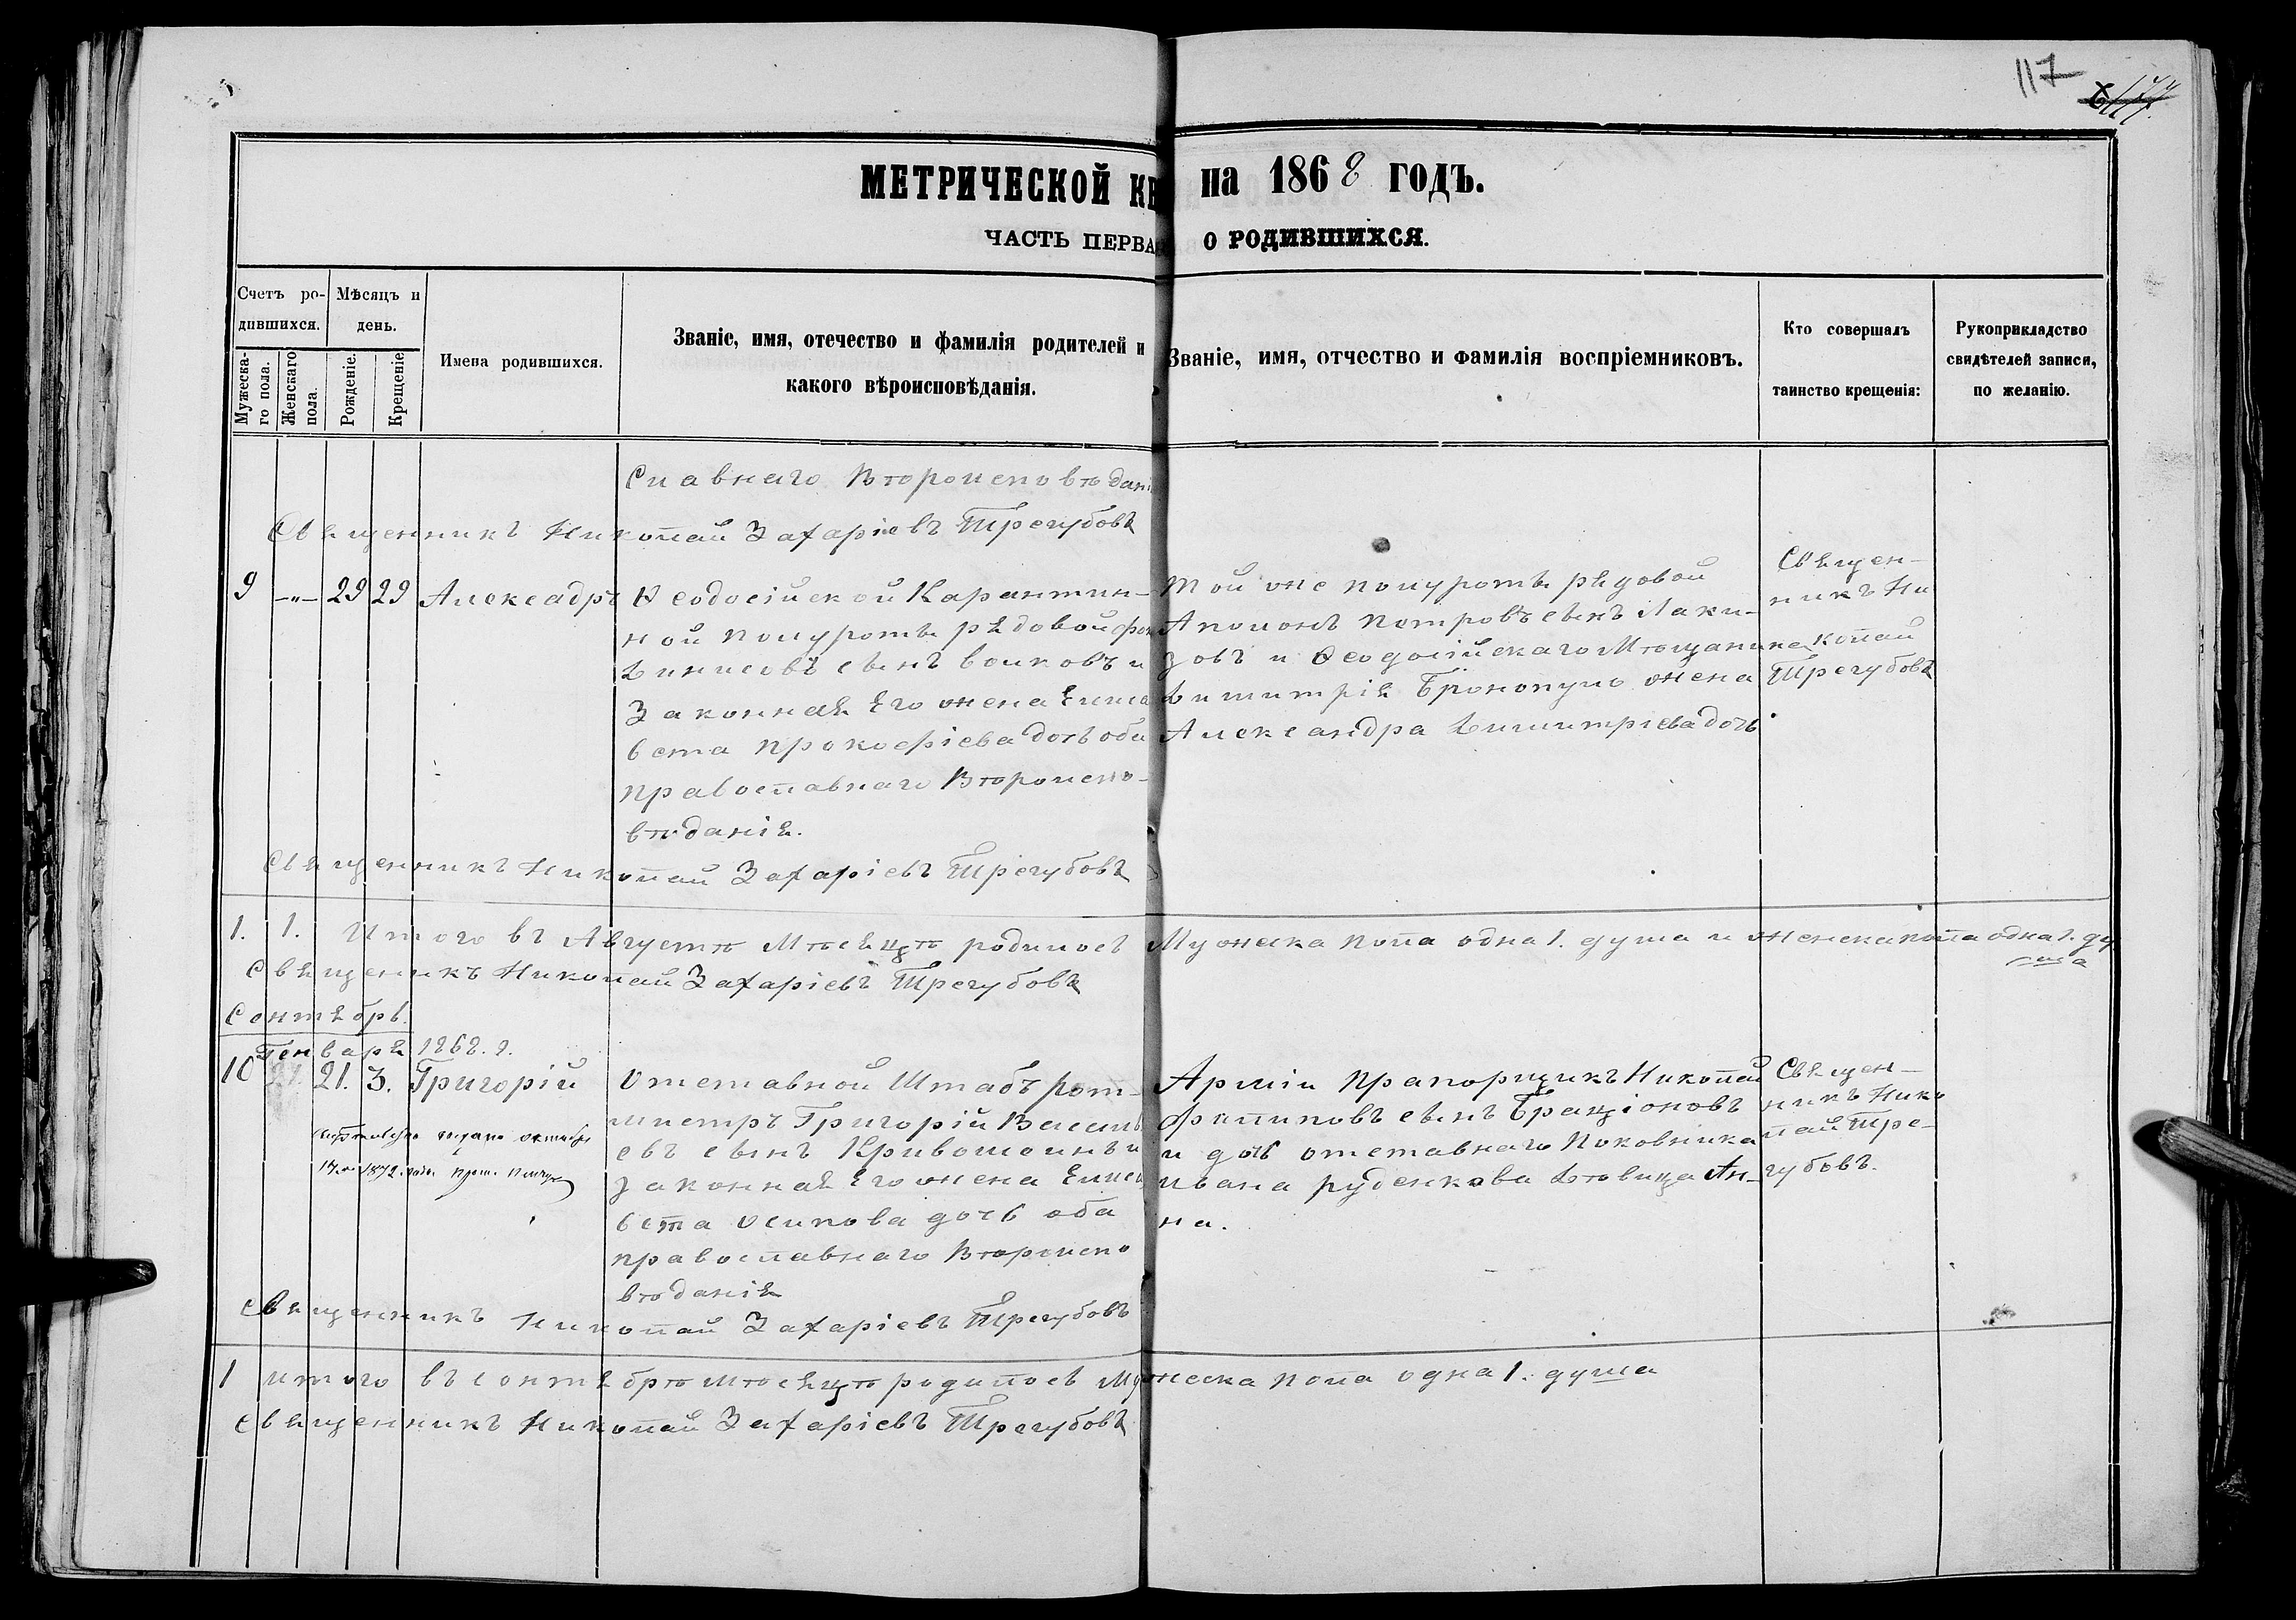 117
МЕТРИЧЕСКОЙ КН на 1868 ГОДЪ.
ЧАСТЬ ПЕРВА О РОДИВШИХСЯ.
Счетъ ро-
дившихся.
Мѣсяцъ и
день.
Мужеска-
го пола.
Женскаго
пола.
Рожденіе.
Крещеніе
Имена родившихся.
Званіе, имя, отечество и фамилія родителей и
какого вѣроисповѣданія.
Званіе, имя, отчество и фамилія воспріемниковъ.
Кто совершалъ
таинство крещенія:
Рукоприкладство
свидѣтелей записи,
по желанію.
Славнаго Вѣроисповѣдані
Священникъ Николай Захаріевъ Трегубовъ
9 -„- 29 29 Алексадръ
Ѳеодосійской Карантин-
ной полуроты рядовой
Динисовъ сынъ волковъ и
Законная Его жена Елиса
вета прокофіева дочь оба
православнаго Вѣроиспо-
вѣданія.
той же полуроты рядовой
Аполонъ петровъ сынъ Лаки-
довъ и Ѳеодосійскаго Мѣщанина
Димитрія Бронопуло жена
Александра Димитріева дочь
Священ-
никъ Ни
колай
Трегубовъ
Священникъ Николай Захаріевъ Трегубовъ
1. 1. Итого въ Августѣ Мѣсяцѣ родилось Мужеска пола одна 1. душа и женска пола одна 1. ду
ша
Священикъ Николай Захаріевъ Трегубовъ
Сентябрь.
Генваря 1868. г.
10 21. 3. Григорій
выдано октября
1872. года
Отставной Штабъ рот-
мистръ Григорій Васил
евъ сынъ Кривошеинъ и
законная Его жена Елиса
вета Осипова дочь оба
православнаго Вѣроиспо
вѣданія
Арміи прапорщикъ Николай
Филиповъ сынъ Бракціоновъ
и дочь отставнаго Полковника
ивана руденкова Дѣвица Ан-
на.
Священ-
никъ Нико
лай Тре-
губовъ.
Священникъ Николай Захаріевъ Трегубовъ
1 итого въ сентябрѣ мѣсяцѣ родилось Мужеска пола одна 1. душа
Священникъ Николай Захаріевъ Трегубовъ